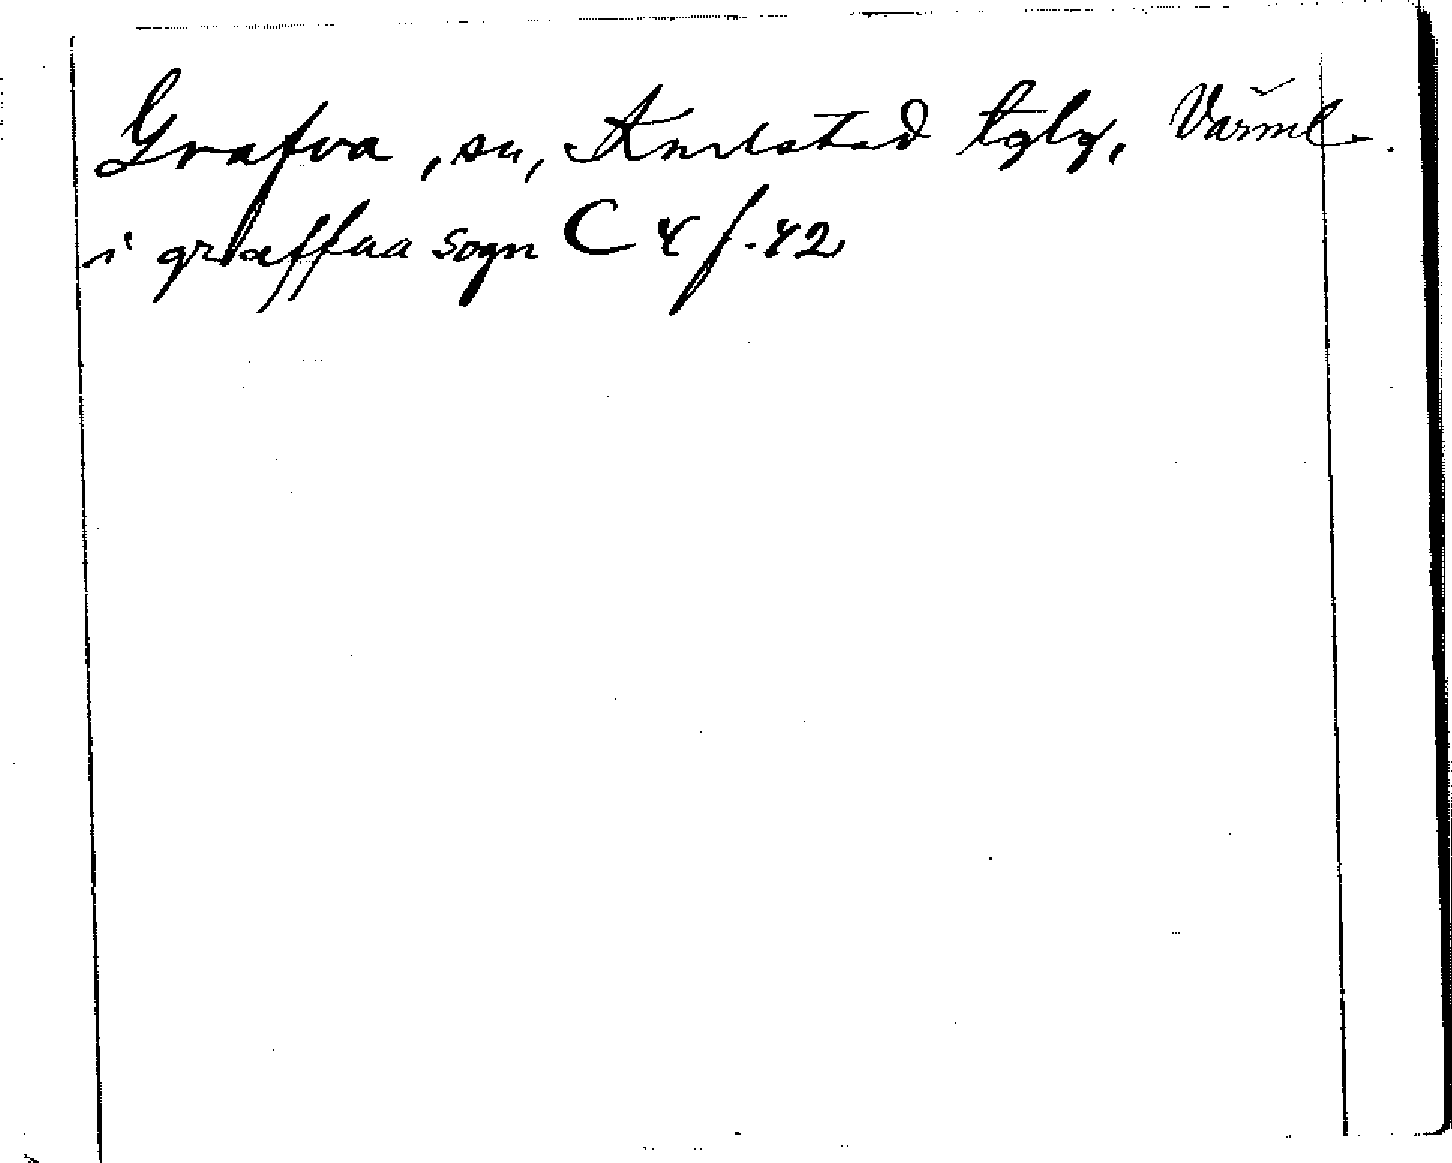 Grafva, sn, Karlstad tglg, Värml.
i graffua sogn C 4 f. 42